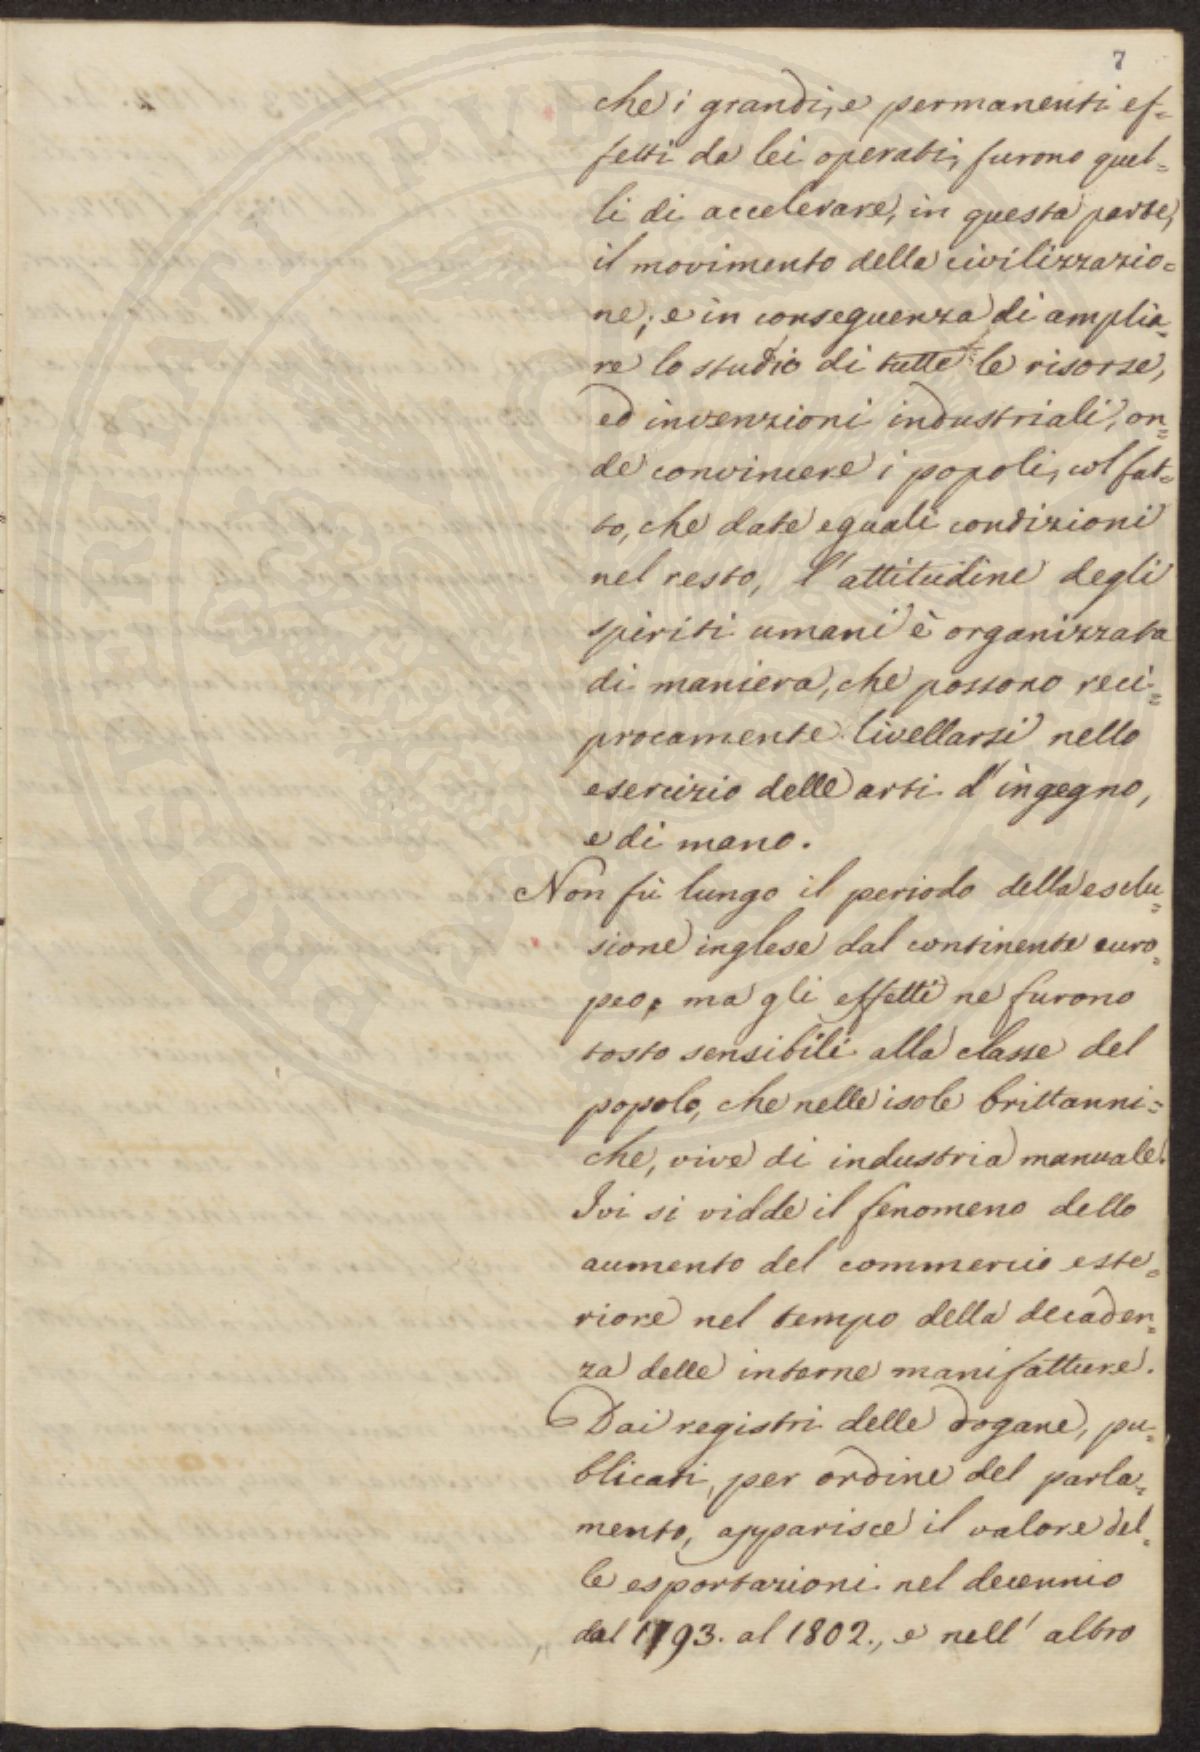 7
che i grandi, e permanenti ef=
fetti da lei operati, furono quel=
li di accelerare, in questa parte,
il movimento della civilizzazio=
ne; e in conseguenza di amplia=
re lo studio di tutte le risorse,
ed invenzioni industriali, on=
de convincere i popoli, col fat=
to, che date eguali condizioni
nel resto, l'attitudine degli
spiriti umani è organizzata
di maniera, che possono reci=
procamente livellarsi nello
esercizio delle arti d'ingegno,
e di mano.
Non fù lungo il periodo della esclu=
sione inglese dal continente euro=
peo, ma gli effetti ne furono
tosto sensibili alla classe del
popolo, che nelle isole brittanni=
che, vive di industria manuale.
Ivi si vidde il fenomeno dello
aumento del commercio este=
riore nel tempo della decaden=
za delle interne manifatture.
Dai registri delle dogane, pu=
blicati, per ordine del parla=
mento, apparisce il valore del=
le esportazioni nel decennio
dal 1793. al 1802., e nell'altro